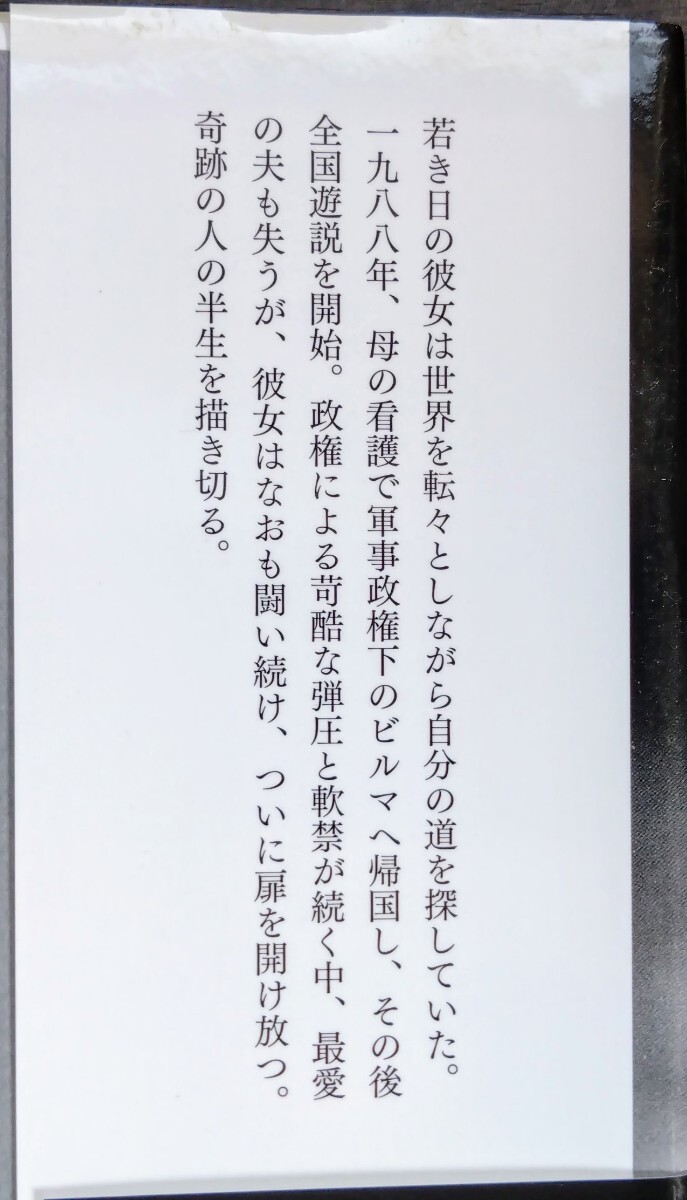 若き日の彼女は世界を転々としながら自分の道を探していた。
一九八八年、母の看護で軍事政権下のビルマへ帰国し、その後
全国遊説を開始。政権による苛酷な弾圧と軟禁が続く中、最愛
の夫も失うが、彼女はなおも闘い続け、ついに扉を開け放つ。
奇跡の人の半生を描き切る。